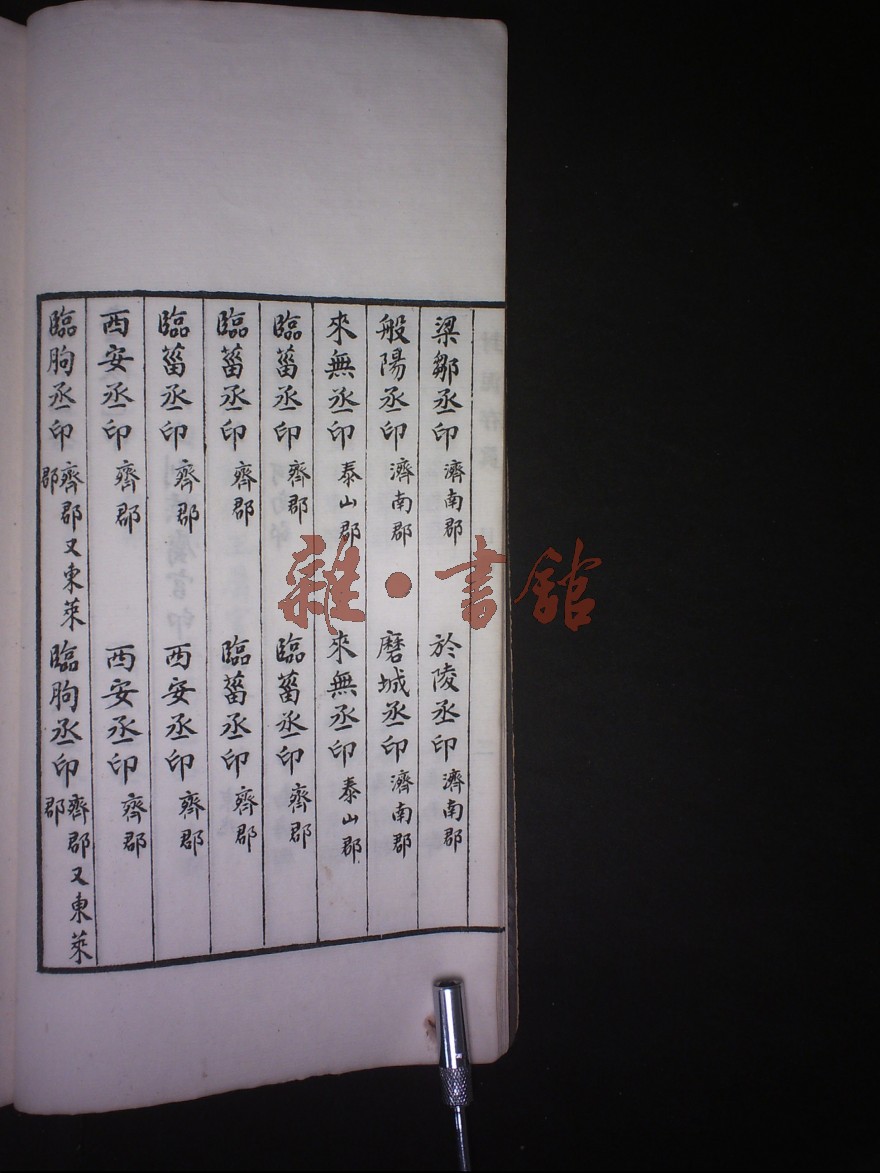 梁鄒丞印 濟南郡 於陵丞印 濟南郡
般陽丞印 濟南郡 磨城丞印 濟南郡
來無丞印 泰山郡 來無丞印 泰山郡
臨菑丞印 齊郡 臨菑丞印 齊郡
臨菑丞印 齊郡 臨菑丞印 齊郡
臨菑丞印 齊郡 西安丞印 齊郡
西安丞印 齊郡 西安丞印 齊郡
臨朐丞印 齊郡又東萊郡 臨朐丞印 齊郡又東萊郡
雜·書館